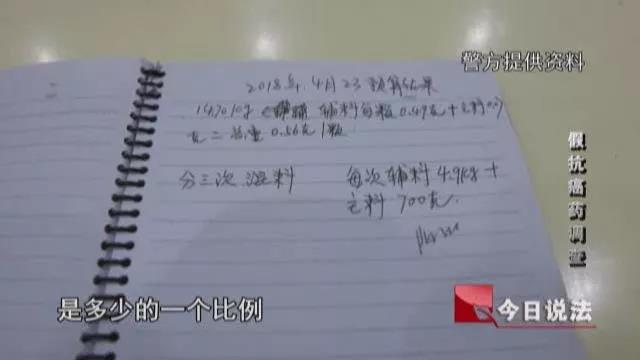 警方提供资料
2018年4月23预算结果
14.70kg 辅料每颗0.49克+主料
克=总重0.56克/颗
分三次混料
每次辅料4.9kg+
主料700克.
假抗癌药调查
是多少的一个比例
今日说法